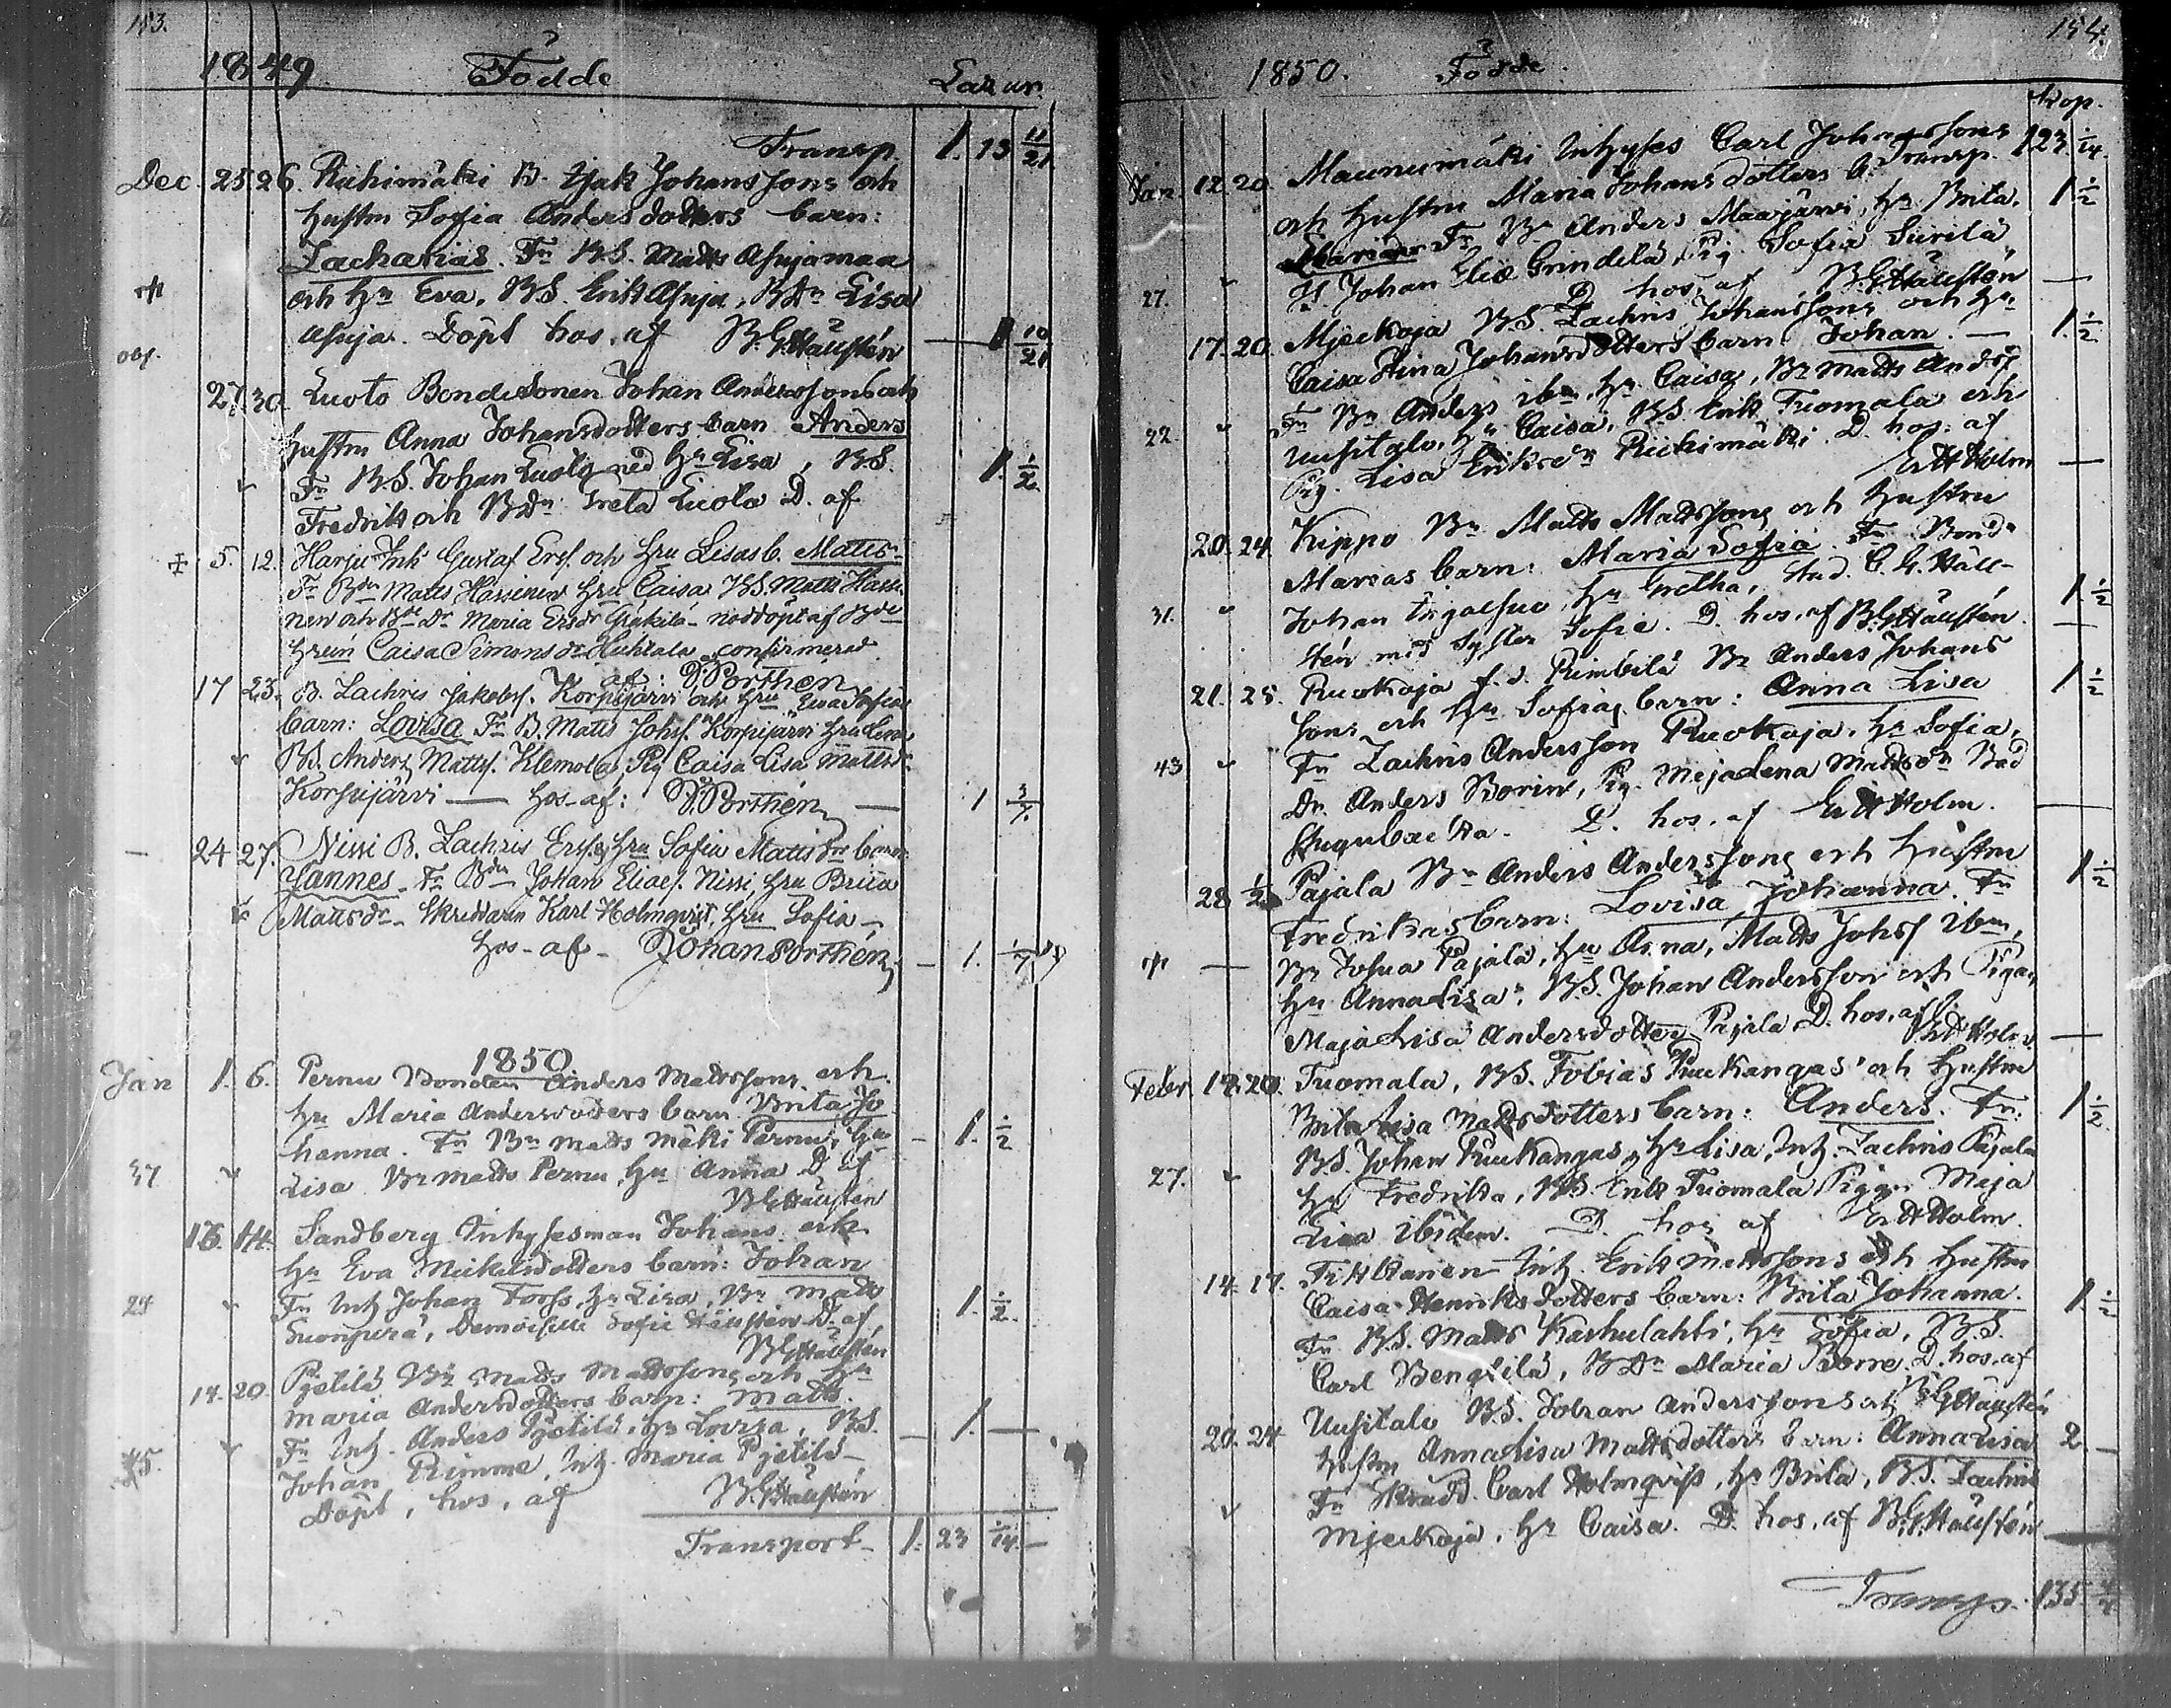 153.
1849 Födde Lazar.
Transp. 1. 13 11/21
Dec. 25 26. Riihimäki B. Isak Johanssons och
hustru Sofia Andersdotters barn:
Zacharias. Fr BS. Matts Asujamaa
och hu Eva, BS. Erik Asuja, BDr Lisa
Asuja. Döpt hos. af B.G. Hällstén 1 10/21
27. 30. Luoto Bondesonen Johan Anderssons och
hustru Anna Johansdotters barn Anders
Fr B.S. Johan Luoto med hu Lisa, BS. 1. 1/2
Fredrik och BDr Greta Luoto D. af
5. 12. Harju Inh. Gustaf Erss. och hru Lisas b. Matts
Fr Bdn Matts Hassinen hru Caisa BS. Matts Hassi-
nen och Bde Dr Maria Ersdr Gråkilä - nöddöpt af Bde
hrun Caisa Simonsdr Huhtala confirmerad
af: J. Porthén
17 23. B. Zachris Jakobss. Korpijärvi och hru Eva Sofias
barn: Lovisa Fr B. Matts Johss. Korpijärvi hru Lena
BS. Anders Mattss. Klemola, Pig Caisa Lisa Mattsdr
Korpijärvi — hos - af: J. Porthén — 1 3/7
24 27. Nissi B. Zachris Erss. & hru Sofia Mattsdrs barn
Hannes. Fr Bdn Johan Eliaes. Nissi, hru Briia
Mattsdr - Skreddaren Karl Holmqvist, hru Sofia -
hos - af - Johan Porthén 1. 1/7
1850
Jan 1. 6. Pernu Bonden Anders Mattssons och
hu Maria Andersdotters barn Brita Jo
hanna. Fr Bn Matts Mäki Pernu, hu 1. 1/2
Lisa Bn Matts Pernu, hu Anna D. af
B.G. Hällstén
13. 14. Sandberg Inhysesman Johans och
hu Eva Mickelsdotters barn: Johan
24 Fr Inh Johan Forss, hu Lisa, Bn Matts 1. 1/2
Suonperä, Demoiselle Sofie Hällstén D. af
B.G. Hällstén
14. 20. Pjetilä Bn Matts Mattssons och hu
Maria Andersdotters barn: Matts.
Fr Inh. Anders Pjetilä, hu Lovisa, BS. 1. —
Johan Rimme, Inh. Maria Pjetilä -
Döpt, hos, af B.G. Hällstén
Transport 1. 23 1/14
154.
1850. Födde
Kop.
Transp. 123 1/14
Jan. 12. 20. Maunumäki Inhyses Carl Johanssons
och hustru Maria Johansdotters b. 1 1/2
Fr Bn Anders Maarjärvi, hu Brita,
Johan Elias Grindelä, Pig Sofia Siirilä
27. D. hos. af B.G. Hällstén —
17. 20. Mjeckaja BS. Zachris Johanssons och hu
Caisa Stina Johansdotters barn Johan. — 1. 1/2
Fr Bn Anders ibm, hu Caisa, Bn Matts Andss
22. Uusitalo, hu Caisa, BS Erik Tuomala och
Pig. Lisa Eriksdr Riihimäki. D. hos: af
Er H Holm —
20. 24. Kippo Bn Matts Mattssons och Hustru
Marias barn: Maria Sofia Fr Bondn
31. Johan Ingalsuo, hu Gretha, Stud. C. G. Häll- 1. 1/2
stén med Syster Sofie. D. hos. af B.G. Hällstén. —
21. 25. Ruokoja f. d. Rimbilä Bn Anders Johans
sons och hu Sofias barn: Anna Lisa 1 1/2
43 Fr Zachris Andersson Ruokoja, hu Sofia,
Dr. Anders Borin, Pig. Maja Lena Mattsdr
D. hos. af Er H Holm. —
28 1/2 Pajala Bn Anders Anderssons och Hustru 1 1/2
Fredrikas barn: Lovisa Johanna. Fr
Bn Josua Pajala, hu Anna, Matts Johss ibm,
hu Anna Lisa, BS. Johan Andersson och Pigan
Maja Lisa Andersdotter Pajala D. hos. af Er H Holm. —
Febr. 18. 20. Tuomala, BS. Tobias Puukangas och hustru
Brita Lisa Mattsdotters barn: Anders. Fr: 1 1/2
BS. Johan Puukangas, hu Lisa, Inh. Zachris Pajala
27. hu Fredrika, BS. Erik Tuomala, Pigan Maja
Lisa ibidem. D. hos af Er H Holm.
14. 17. Inh. Erik Mattssons och hustru
Caisa Henriksdotters barn: Brita Johanna. 1 1/2
Fr BS. Matts Karhulahti, hu Sofia, BS.
Carl Bengtilä, BDr Maria Borre D. hos. af
B.G. Hällstén
20. 24 Uusitalo BS. Johan Anderssons och
hustru Anna Lisa Mattsdotters barn: Anna Lisa 2 —
Fr Skradd. Carl Holmqvist, hu Brita, BS. Zachris
Mjeckaja, hu Caisa. D. hos. af B.G. Hällstén
Transp. 135